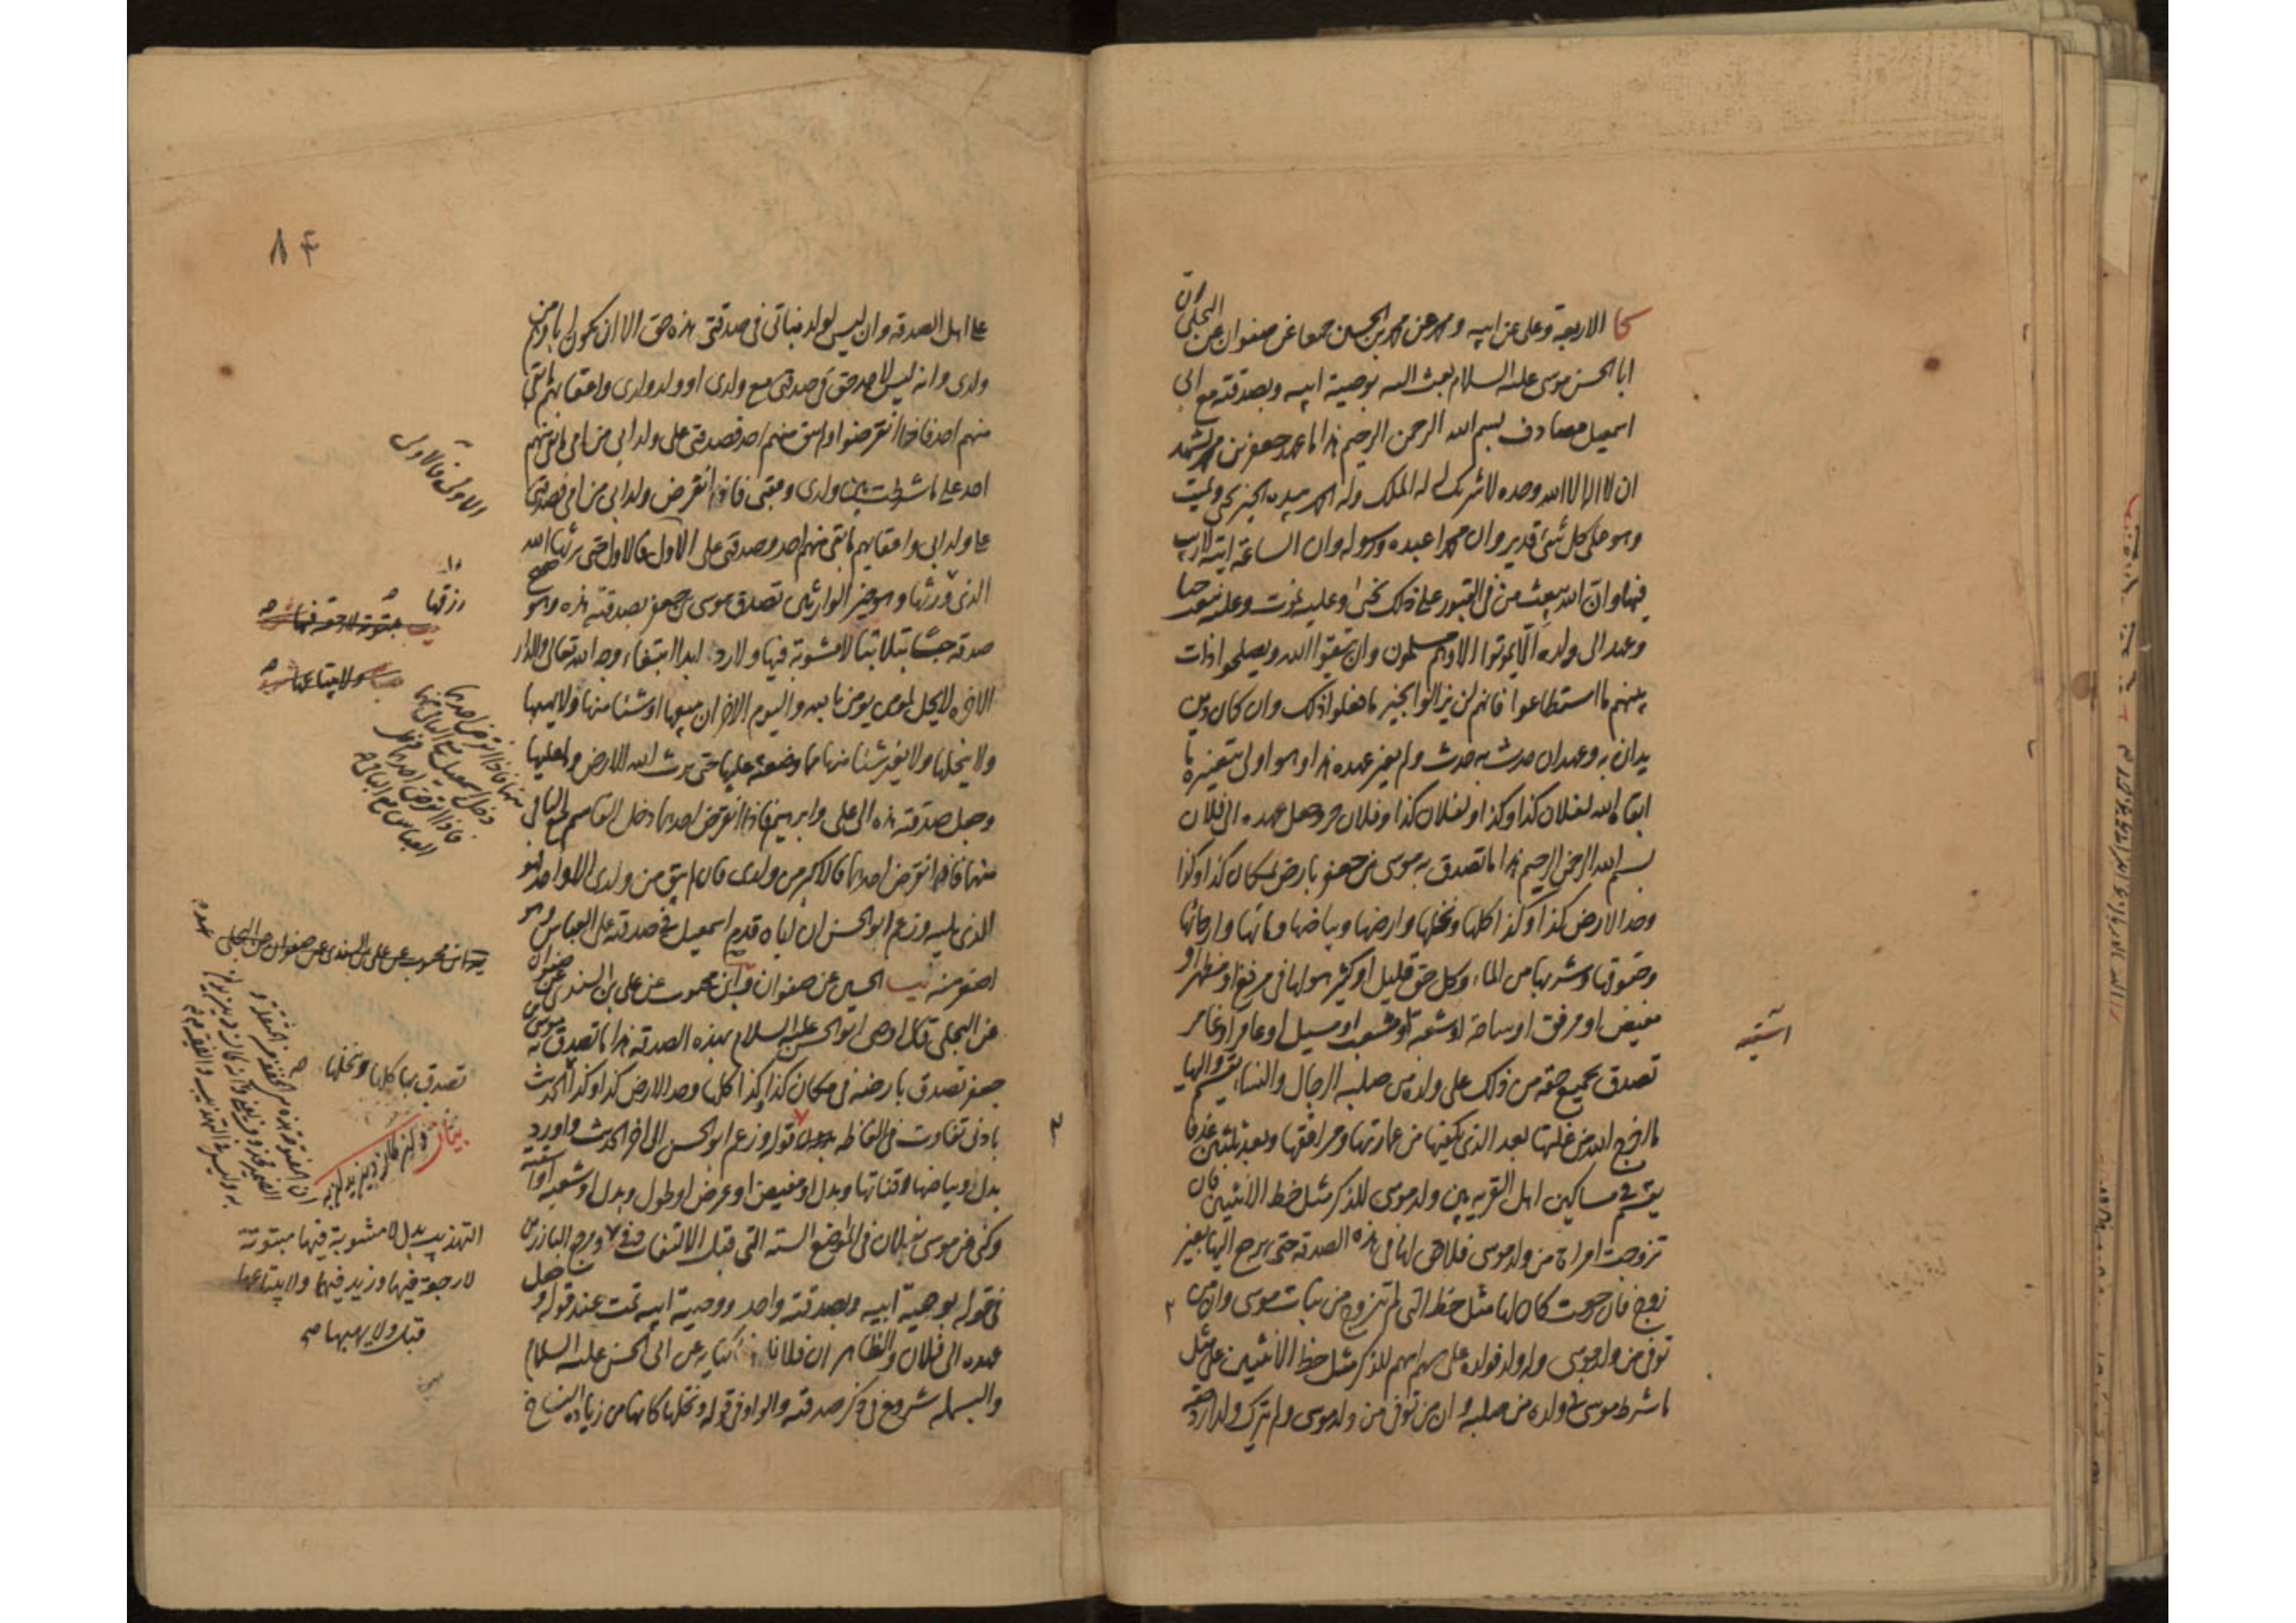 كا الاربعة وعلى عن ابيه ومحمد عن محمد بن الحسين جميعا عن صفوان عن البجلي ان
ابا الحسن موسى عليه السلام بعث اليه بوصية ابيه وبصدقته مع ابي
اسمعيل مصادف بسم الله الرحمن الرحيم هذا ما عهد جعفر بن محمد يشهد
ان لا اله الا الله وحده لا شريك له له الملك وله الحمد بيده الخير يحيي ويميت
وهو على كل شئ قدير وان محمدا عبده ورسوله وان الساعة اتية لا ريب
فيها وان الله يبعث من في القبور على ذلك نحيى وعليه نموت وعليه نبعث حيا
وعهد الى ولده الا يموتوا الا وهم مسلمون وان يتقوا الله ويصلحوا ذات
بينهم ما استطاعوا فانهم لن يزالوا بخير ما فعلوا ذلك وان كان دين
يدان به وعهد ان حدث به حدث ولم يغير عهده هذا وهو اولى بتغييره ما
ابقاه الله لفلان كذا وكذا ولفلان كذا وفلان حر وجعل عهده الى فلان
بسم الله الرحمن الرحيم هذا ما تصدق به موسى بن جعفر بارض بمكان كذا وكذا
وحد الارض كذا وكذا كلها ونخلها وارضها وبياضها ومائها وارجائها
وحقوقها وشربها من الماء وكل حق قليل او كثير هو لها في مرفع او مظهر او
مغيض او مرفق او ساحة او شعبة او مشعب او مسيل او عامر او غامر
تصدق بجميع حقه من ذلك على ولده من صلبه الرجال والنساء يقسم واليها
ما اخرج الله من غلتها بعد الذي يكفيها من عمارتها ومرافقها وبعد ثلثين عذقا
يقسم في مساكين اهل القرية بين ولد موسى للذكر مثل حظ الانثيين فان
تزوجت امراة من ولد موسى فلا حق لها في هذه الصدقة حتى يرجع اليها بغير
زوج فان رجعت كان لها مثل حظ التي لم تتزوج من بنات موسى وان من
توفى من ولد موسى وله ولد فولده على سهم ابيهم للذكر مثل حظ الانثيين على مثل
ما شرط موسى في ولده من صلبه وان من توفى من ولد موسى ولم يترك ولدا رد حقه
اشنه
٨٤
على اهل الصدقة وان ليس لولد بناتي في صدقتي هذه حق الا ان يكون اباؤهم من
ولدى وانه ليس لاحد حق في صدقتي مع ولدى او ولد ولدى واعقابهم ما بقى
منهم احد فاذا انقرضوا ولم يبق منهم احد فصدقتي على ولد ابي من امي ما بقى منهم
احد على ما شرطت بين ولدى وعقبي فاذا انقرض ولد ابي من امي فصدقتي
على ولد ابي واعقابهم ما بقى منهم احد وصدقتي على الاول فالاول حتى يرثها الله
الذي ورثها وهو خير الوارثين تصدق موسى بن جعفر بصدقته هذه وهو صحيح
صدقة حبسا بتلا بتا لا مشوبة فيها ولا رد ابدا ابتغاء وجه الله تعالى والدار
الاخرة لا يحل لمؤمن يؤمن بالله واليوم الاخر ان يبيعها او شيئا منها ولا يهبها
ولا ينحلها ولا يغير شيئا منها مما وضعته عليها حتى يرث الله الارض وما عليها
وجعل صدقته هذه الى على وابرهيم فاذا انقرض احدهما دخل القاسم مع الباقي
منهما فاذا انقرض احدهما فالاكبر من ولدى فان لم يبق من ولدى الا واحد فهو
الذي يليه وزعم ابو الحسن ان اباه قدم اسمعيل في صدقته على العباس وهو
اصغر منه يب الحسين عن صفوان وابن محبوب عن على بن السندى عن صفوان
عن البجلي قال اوصى ابو الحسن عليه السلام بهذه الصدقة هذا ما تصدق به موسى بن
جعفر تصدق بارضه في مكان كذا وكذا كلها وحد الارض كذا وكذا الحديث
بادنى تفاوت في الفاظه قوله وزعم ابو الحسن الى اخر الحديث واورد
بدل وبياضها وقناتها وبدل او مغيض او عرض او طول وبدل او شعبة او اسقية
وكنى عن موسى بفلان في المواضع الستة التي قبل الالتفات في ورجع البارز
في قوله بوصية ابيه وبصدقته واحد ووصية ابيه تمت عند قوله وجعل
عهده الى فلان والظاهر ان فلانا كناية عن ابي الحسن عليه السلام
والبسملة شروع في ذكر صدقته والواو في قوله ونخلها كانها من زيادة النساخ
الاولى فالاولى
رزقها
مبتوتة لا رجعة فيها
ولا يبتاعها
منهما فاذا انقرض احدهما
دخل اسمعيل مع الباقي منهما
فاذا انقرض احدهما دخل
العباس مع الباقي صح
ابن محبوب عن على بن السندى عن صفوان عن البجلي
تصدق بها كلها ونخلها
بيان وان كان دين يدان به
التهذيب بدل لا مشوبة فيها مبتوتة
لا رجعة فيها وزيد فيها ولا يبتاعها
قبل ولا يهبها صح